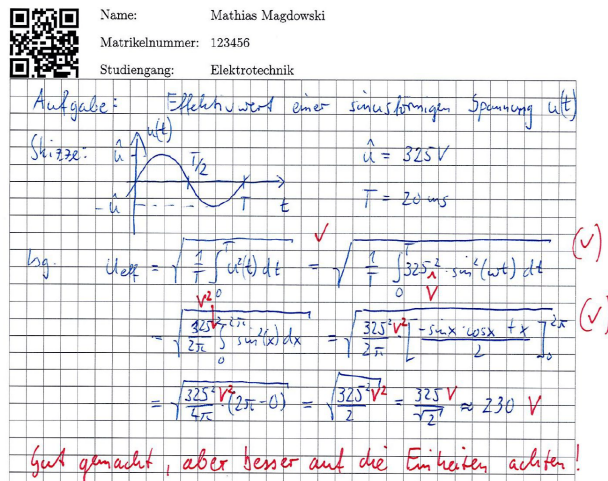 Name: Mathias Magdowski
Matrikelnummer: 123456
Studiengang: Elektrotechnik
Aufgabe: Effektivwert einer sinusförmigen Spannung u(t)
Skizze: û u(t) T/2 û = 325V
-û T t T = 20 ms
Lsg. U_eff = √(1/T ∫₀ᵀ u²(t) dt) √ = √(1/T ∫₀ᵀ 325² V · sin²(ωt) dt) (√)
= √(325² V²/2π ∫₀^2π sin²(x) dx) = √(325² V²/2π · [(-sinx · cosx + x)/2]₀^2π) (√)
= √(325² V²/4π · (2π-0)) = √(325² V²/2) = 325 V/√2 ≈ 230 V
Gut gemacht, aber besser auf die Einheiten achten!